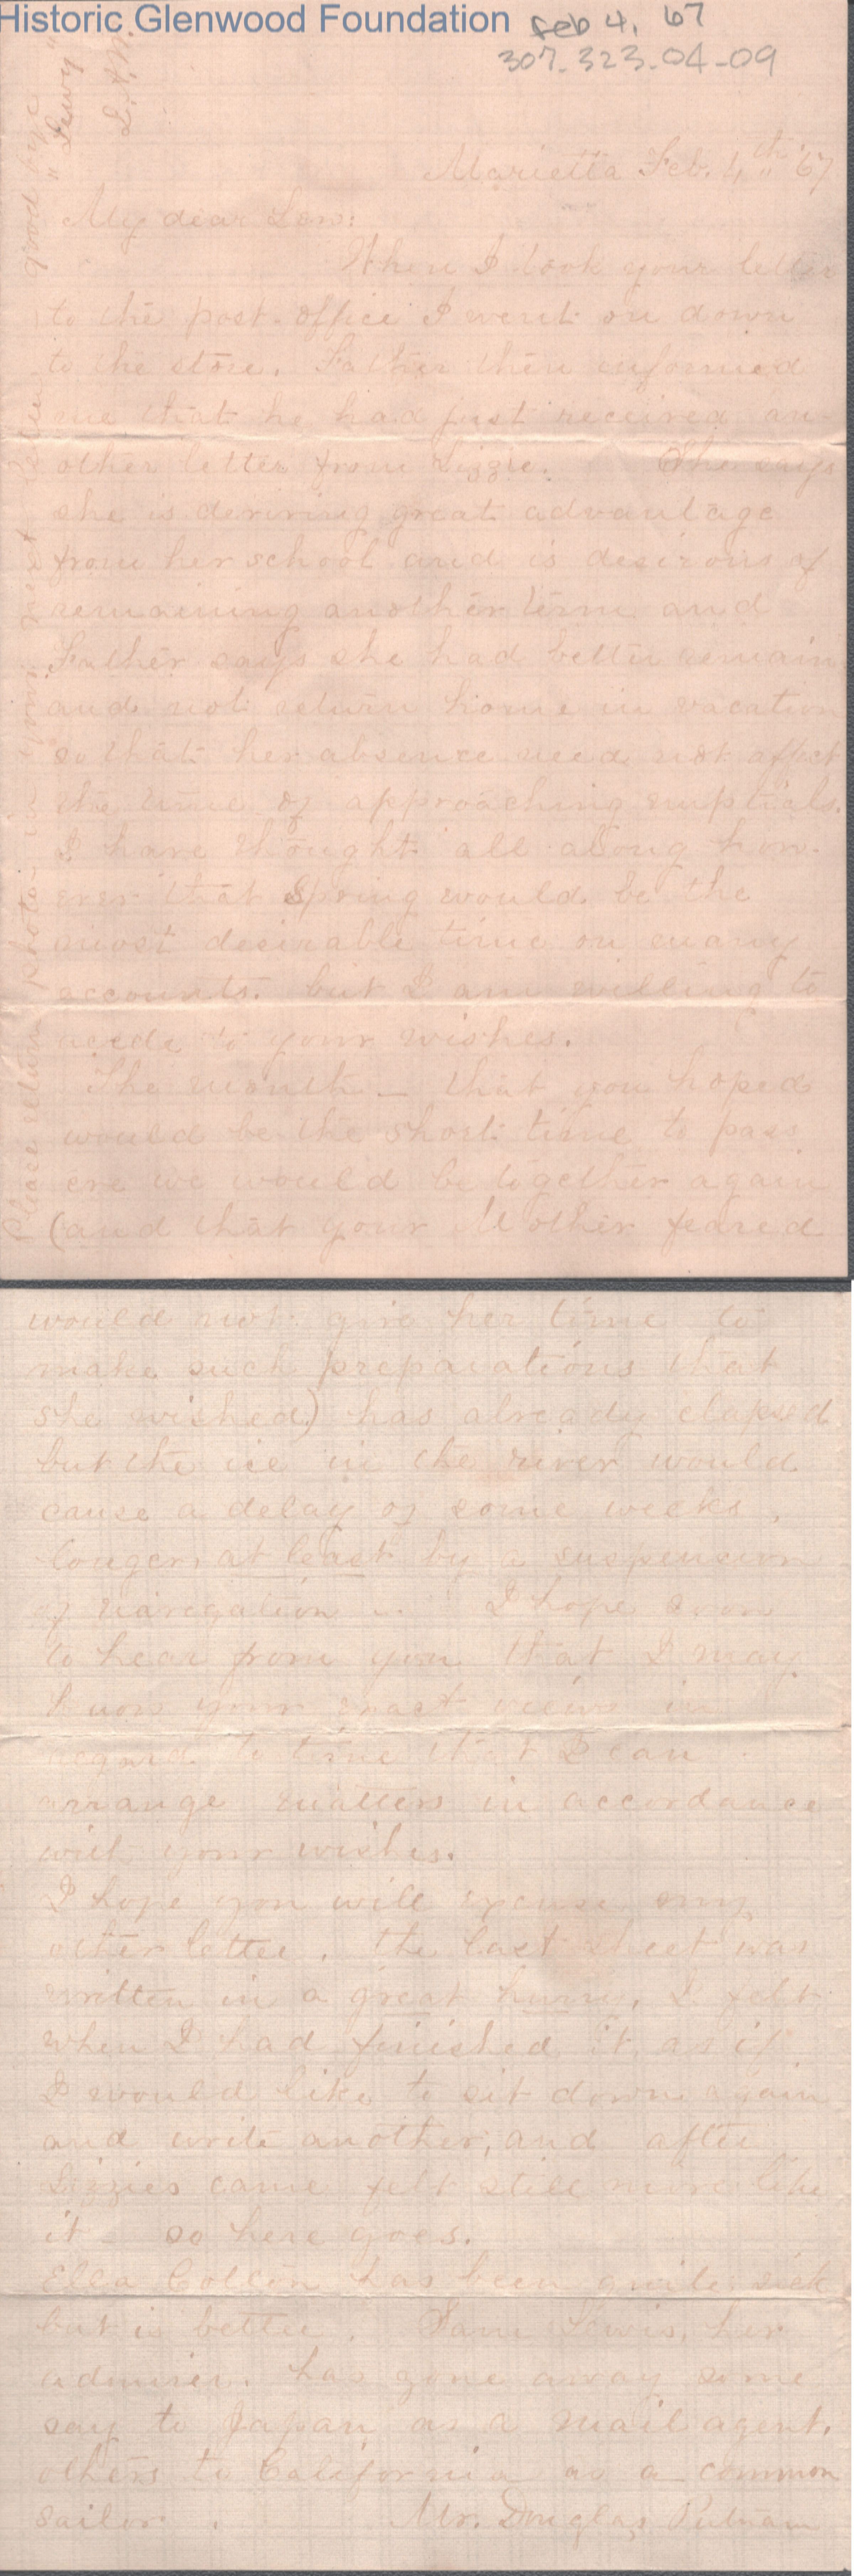 Historic Glenwood Foundation
Feb 4, 67
307-323-04-09
Marietta Feb. 4th '67
My dear Lew:
When I took your letter
to the post-office I went on down
to the store. Father then informed
me that he had just received an-
other letter from Lizzie. She says
she is deriving great advantage
from her school and is desirous of
remaining another term and
Father says she had better remain
and not return home in vacation
so that her absence need not affect
the time of approaching nuptials.
I have thought all along how-
ever that Spring would be the
most desirable time on many
accounts. but I am willing to
accede to your wishes.
The month – that you hoped
would be the short time to pass
ere we would be together again
(and that your Mother feared
would not give her time to
make such preparations that
she wished) has already elapsed
but the ice in the river would
cause a delay of some weeks
longer, at least by a suspension
of navigation. I hope soon
to hear from you that I may
know your exact views in
regard to time that I can
arrange matters in accordance
with your wishes.
I hope you will excuse my
other letter, the last sheet was
written in a great hurry. I felt
when I had finished it as if
I would like to sit down again
and write another, and after
Lizzies came felt still more like
it – so here goes.
Ella Cotton has been quite sick
but is better. Sam Lewis, her
admirer, has gone away some
say to Japan as a mail agent,
others to California as a common
sailor. Mr. Douglas Putnam
Please return photo. in your next letter
good bye
"Lewy"